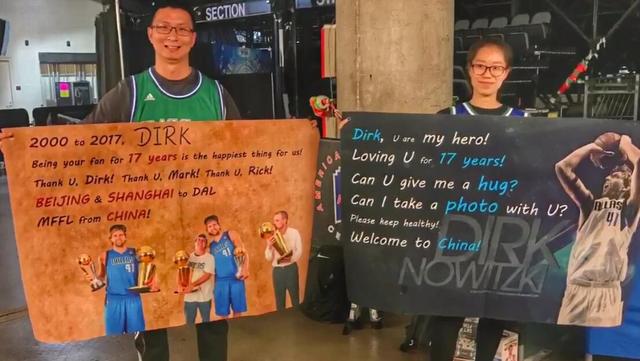 SECTION
2000 to 2017, DIRK
Being your fan for 17 years is the happiest thing for us!
Thank U, Dirk! Thank U, Mark! Thank U, Rick!
BEIJING & SHANGHAI to DAL
MFFL from CHINA!
41
Dirk, U are my hero!
Loving U for 17 years!
Can U give me a hug?
Can I take a photo with U?
Please keep healthy!
Welcome to China!
DIRK
NOWITZKI
41